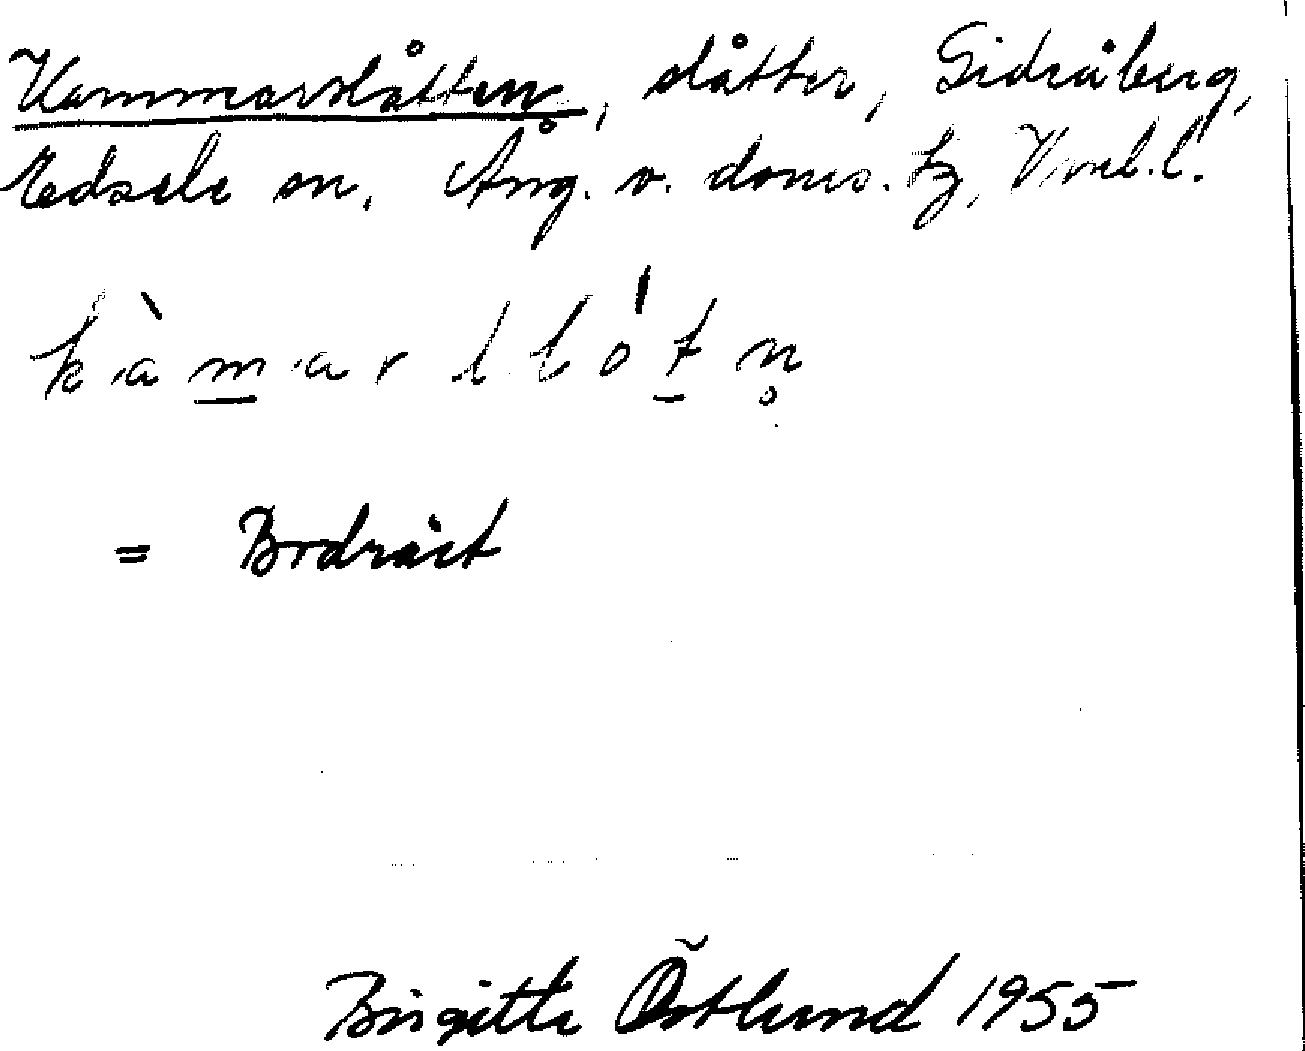 Kammarslåtten, slåtter, Gideåberg,
Edsele sn, Ång. v. doms. tg, Vnrl. l.
kàmarllótn̥
= Bodråst
Birgitta Östlund 1955